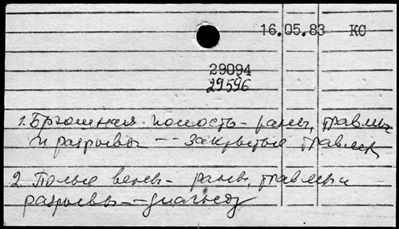 16.05.83 КС
29094
29596
1. Брюшная полость - раны, травмы
и разрывы -- закрытые травмы
2. Полые вены - раны, травмы и
разрывы -- диагноз